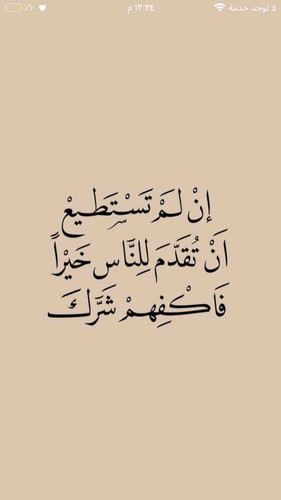 لا توجد خدمة ١٢:٣٤ م ٪١٠
إنْ لَمْ تَسْتَطيعْ
انْ تُقَدّمَ لِلنَّاس خَيْراً
فَاكْفِهمْ شَرَّكَ